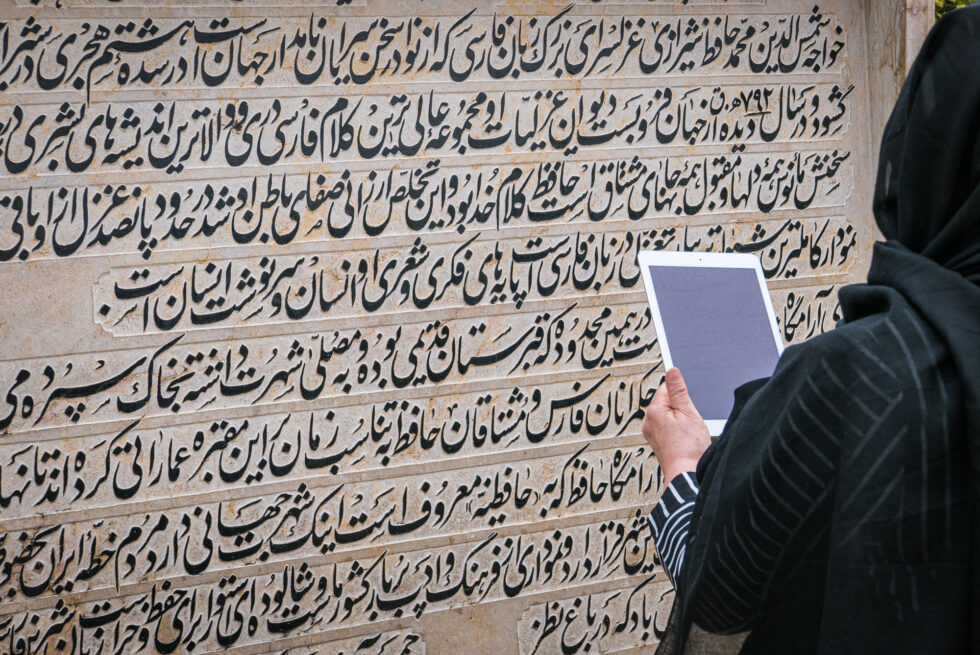 خواجه شمس الدین محمد حافظ شیرازی غزلسرای بزرگ زبان فارسی که از نوادر سخن سرایان نامدار جهان است در سده هشتم هجری در شیراز
گشود و در سال ۷۹۲ ه‍.ق دیده از جهان فرو بست دیوان غزلیات او مجموعه عالی ترین کلام فارسی دری و والاترین اندیشه های بشری
سخنش مأنوس همه دلها و مقبول همه جانهای مشتاق است حافظ کلام خدا بود و این تخلص ارزانی صفای باطن او شد در حدود پانصد غزل از او باقی
نمودار کاملترین در زبان فارسی است پایه های فکری و شعری او انسان و سرنوشت انسان است.
آرامگاه در همین محدوده که قبرستان قدیمی بوده و به مصلی شهرت داشته بخاک سپرده می
حکمرانان فارس و مشتاقان حافظ به تناسب زمان بر این مقبره عماراتی کرده اند تا نها
آرامگاه حافظ که به (حافظیه) معروف است اینک شهر جهانی دارد مردم خطه ایران بخصوص
قرار دارد و نموداری از فرهنگ و ادب پربار کشور ماست و شالوده ای استوار برای حفظ و حراست
باد که در باغ نظر